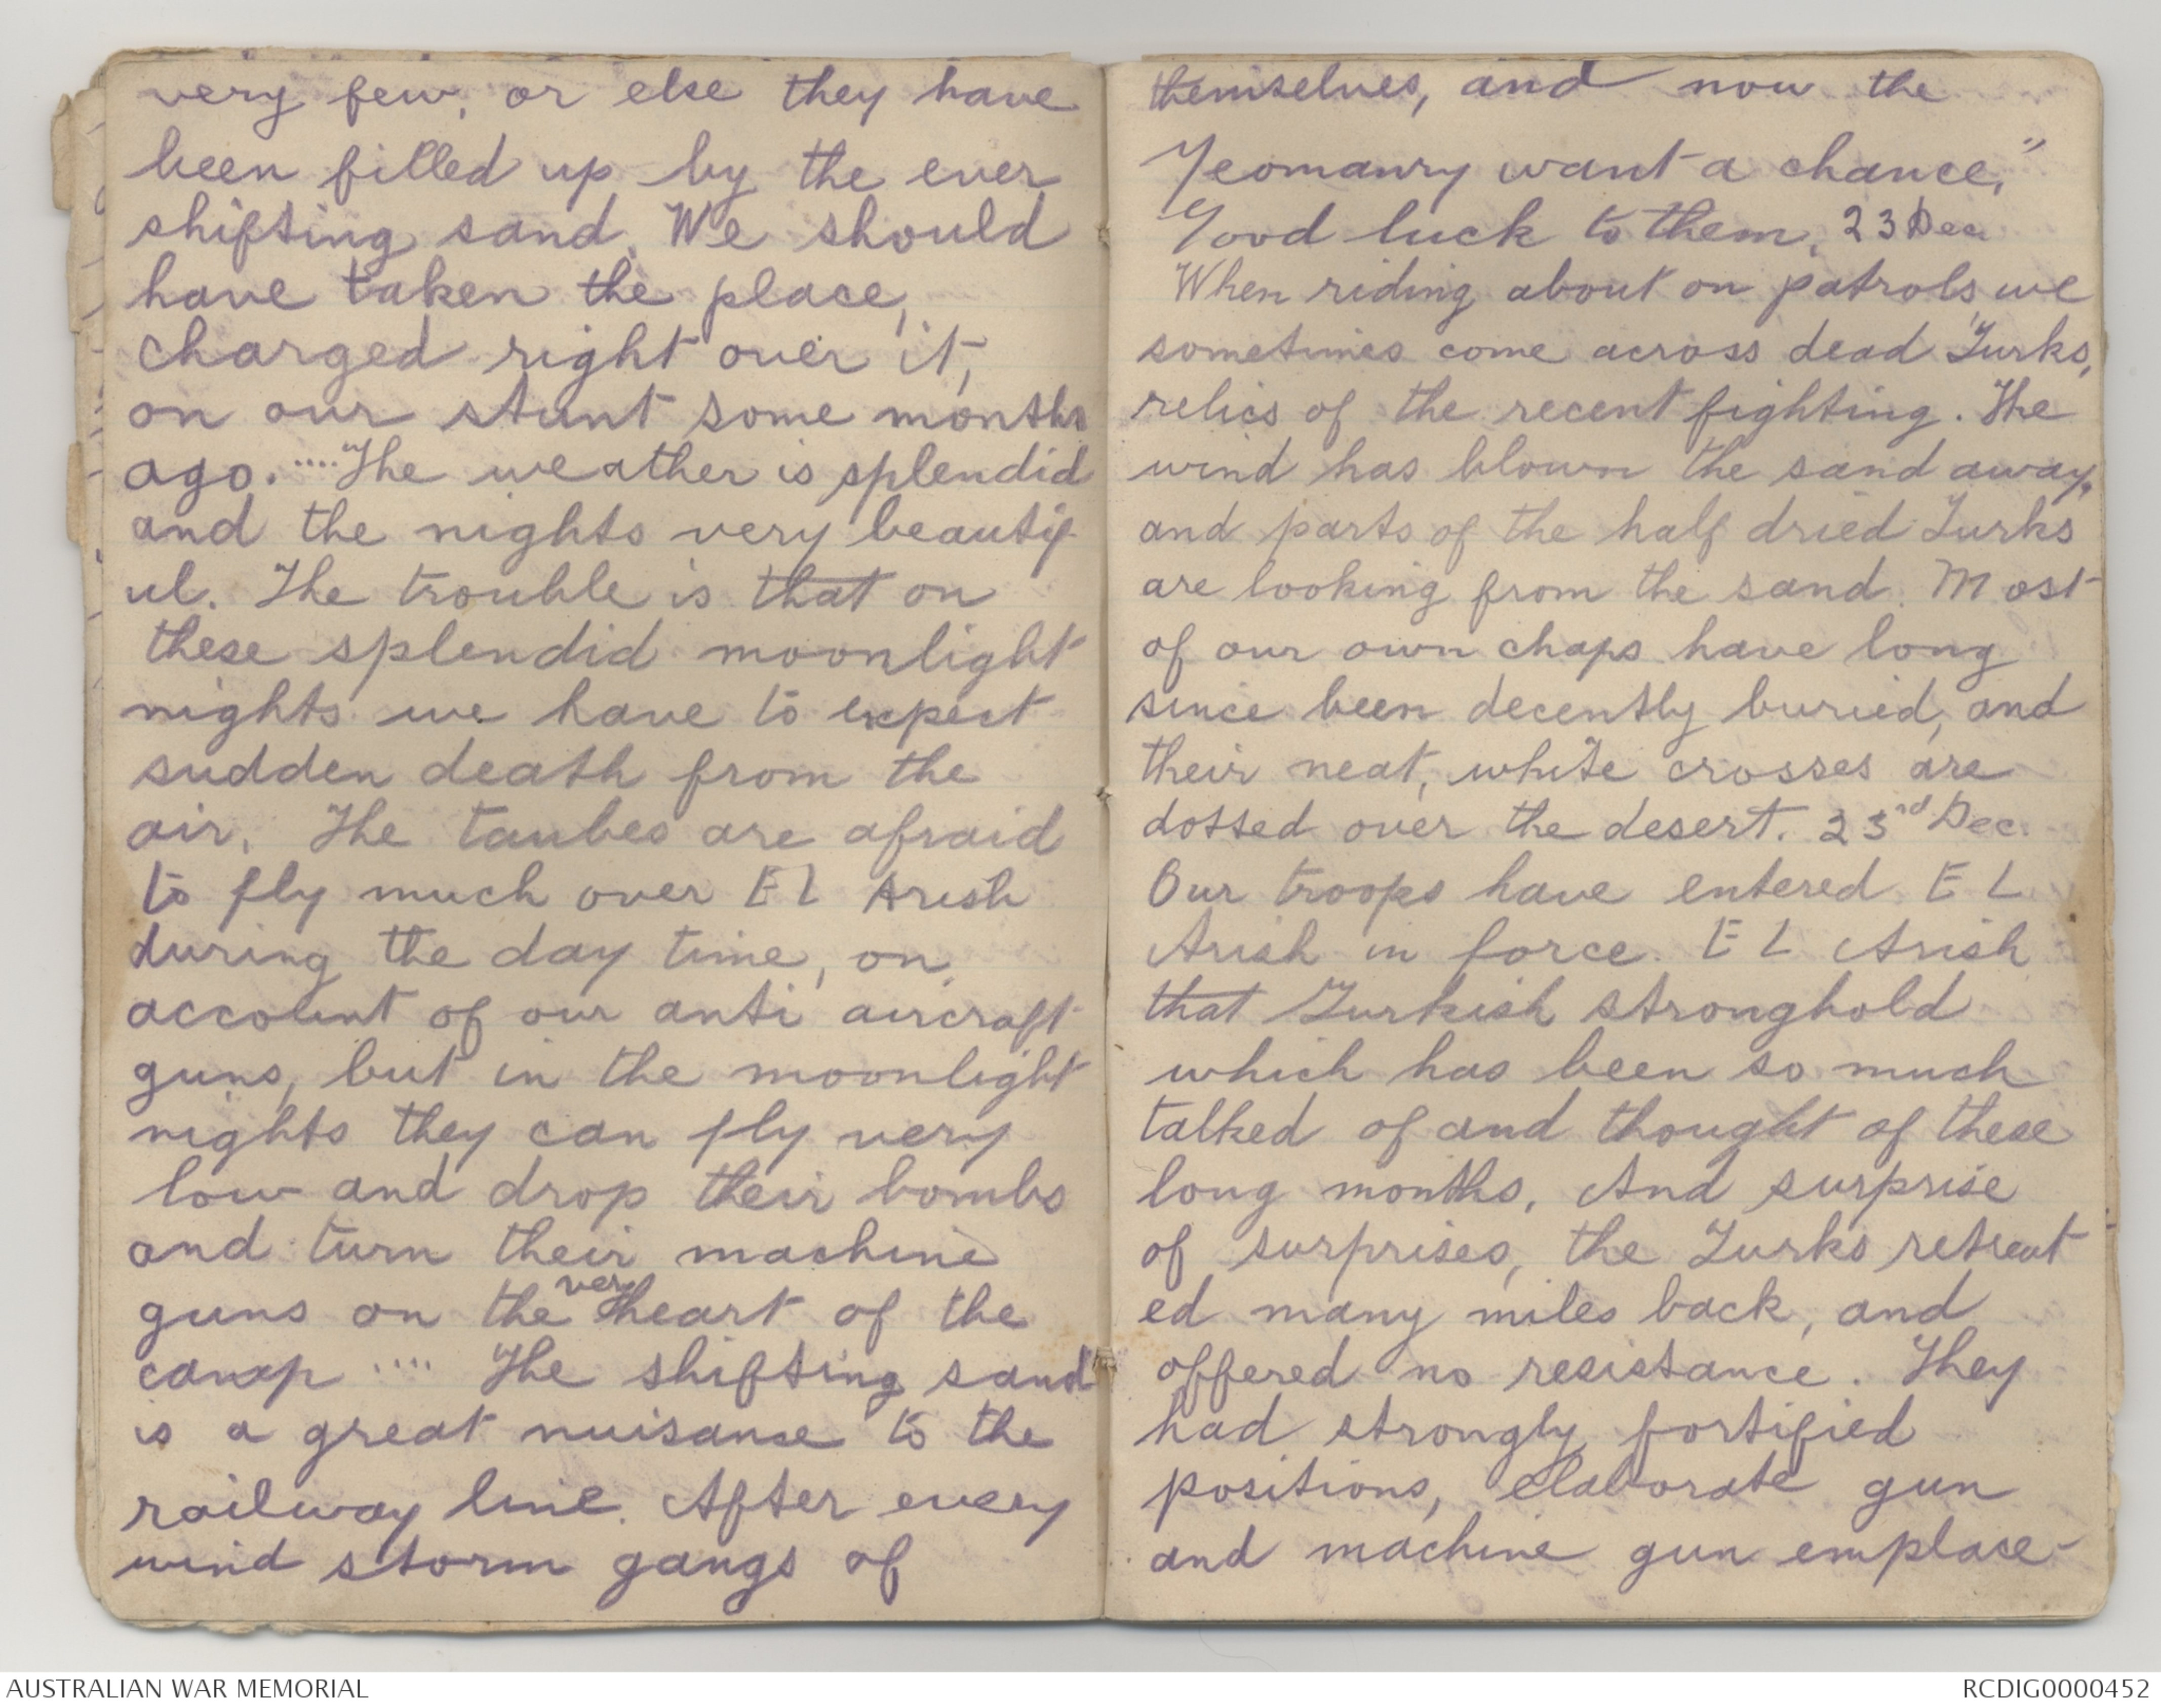 very few, or else they have
been filled up by the ever
shifting sand. We should
have taken the place,
charged right over it,
on our stunt some months
ago. .... The weather is splendid
and the nights very beautif
ul. The trouble is that on
these splendid moonlight
nights we have to expect
sudden death from the
air. The taubes are afraid
to fly much over El Arish
during the day time, on
account of our anti aircraft
guns, but in the moonlight
nights they can fly very
low and drop their bombs
and turn their machine
guns on the very heart of the
camp .... The shifting sand
is a great nuisance to the
railway line. After every
wind storm gangs of
themselves, and now the
Yeomanry want a chance."
Good luck to them. 23 Dec.
When riding about on patrols, we
sometimes come across dead Turks,
relics of the recent fighting. The
wind has blown the sand away,
and parts of the half dried Turks
are looking from the sand. Most
of our own chaps have long
since been decently buried, and
their neat, white crosses are
dotted over the desert. 23rd Dec.
Our troops have entered EL
Arish in force. EL Arish
that Turkish stronghold
which has been so much
talked of and thought of these
long months. And surprise
of surprises, the Turks retreat
ed many miles back, and
offered no resistance. They
had strongly fortified
positions, elaborate gun
and machine gun emplace-
AUSTRALIAN WAR MEMORIAL
RCDIG0000452